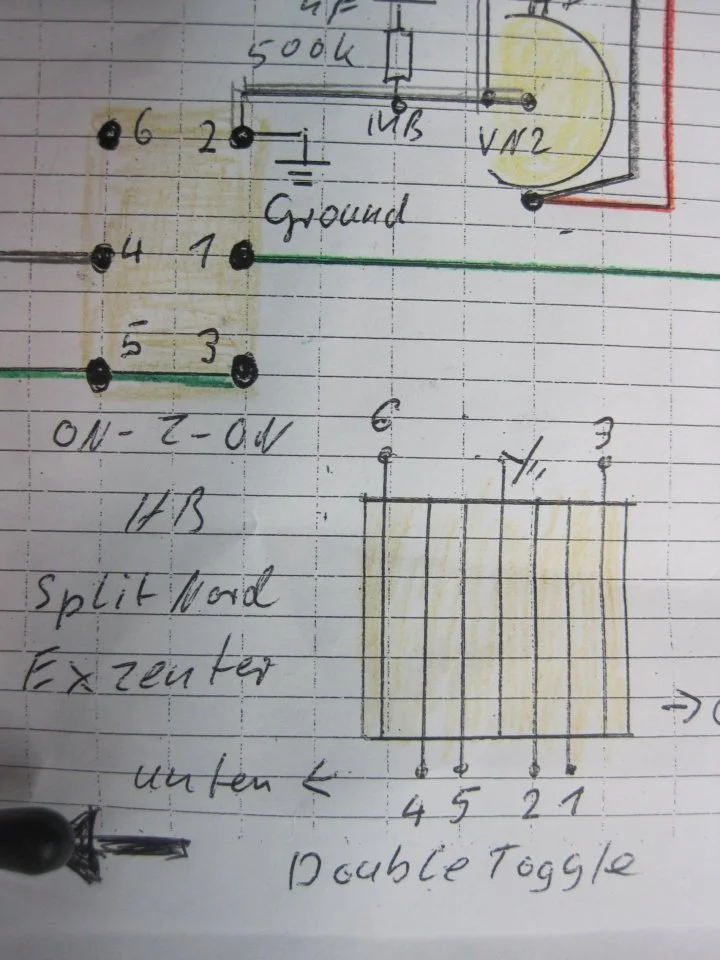 500k
6 2
MB
VN2
Ground
4 1
5 3
6
3
ON-Z-ON
HB
Split Nord
Exzenter
unten ←
→
4 5 2 1
Double Toggle